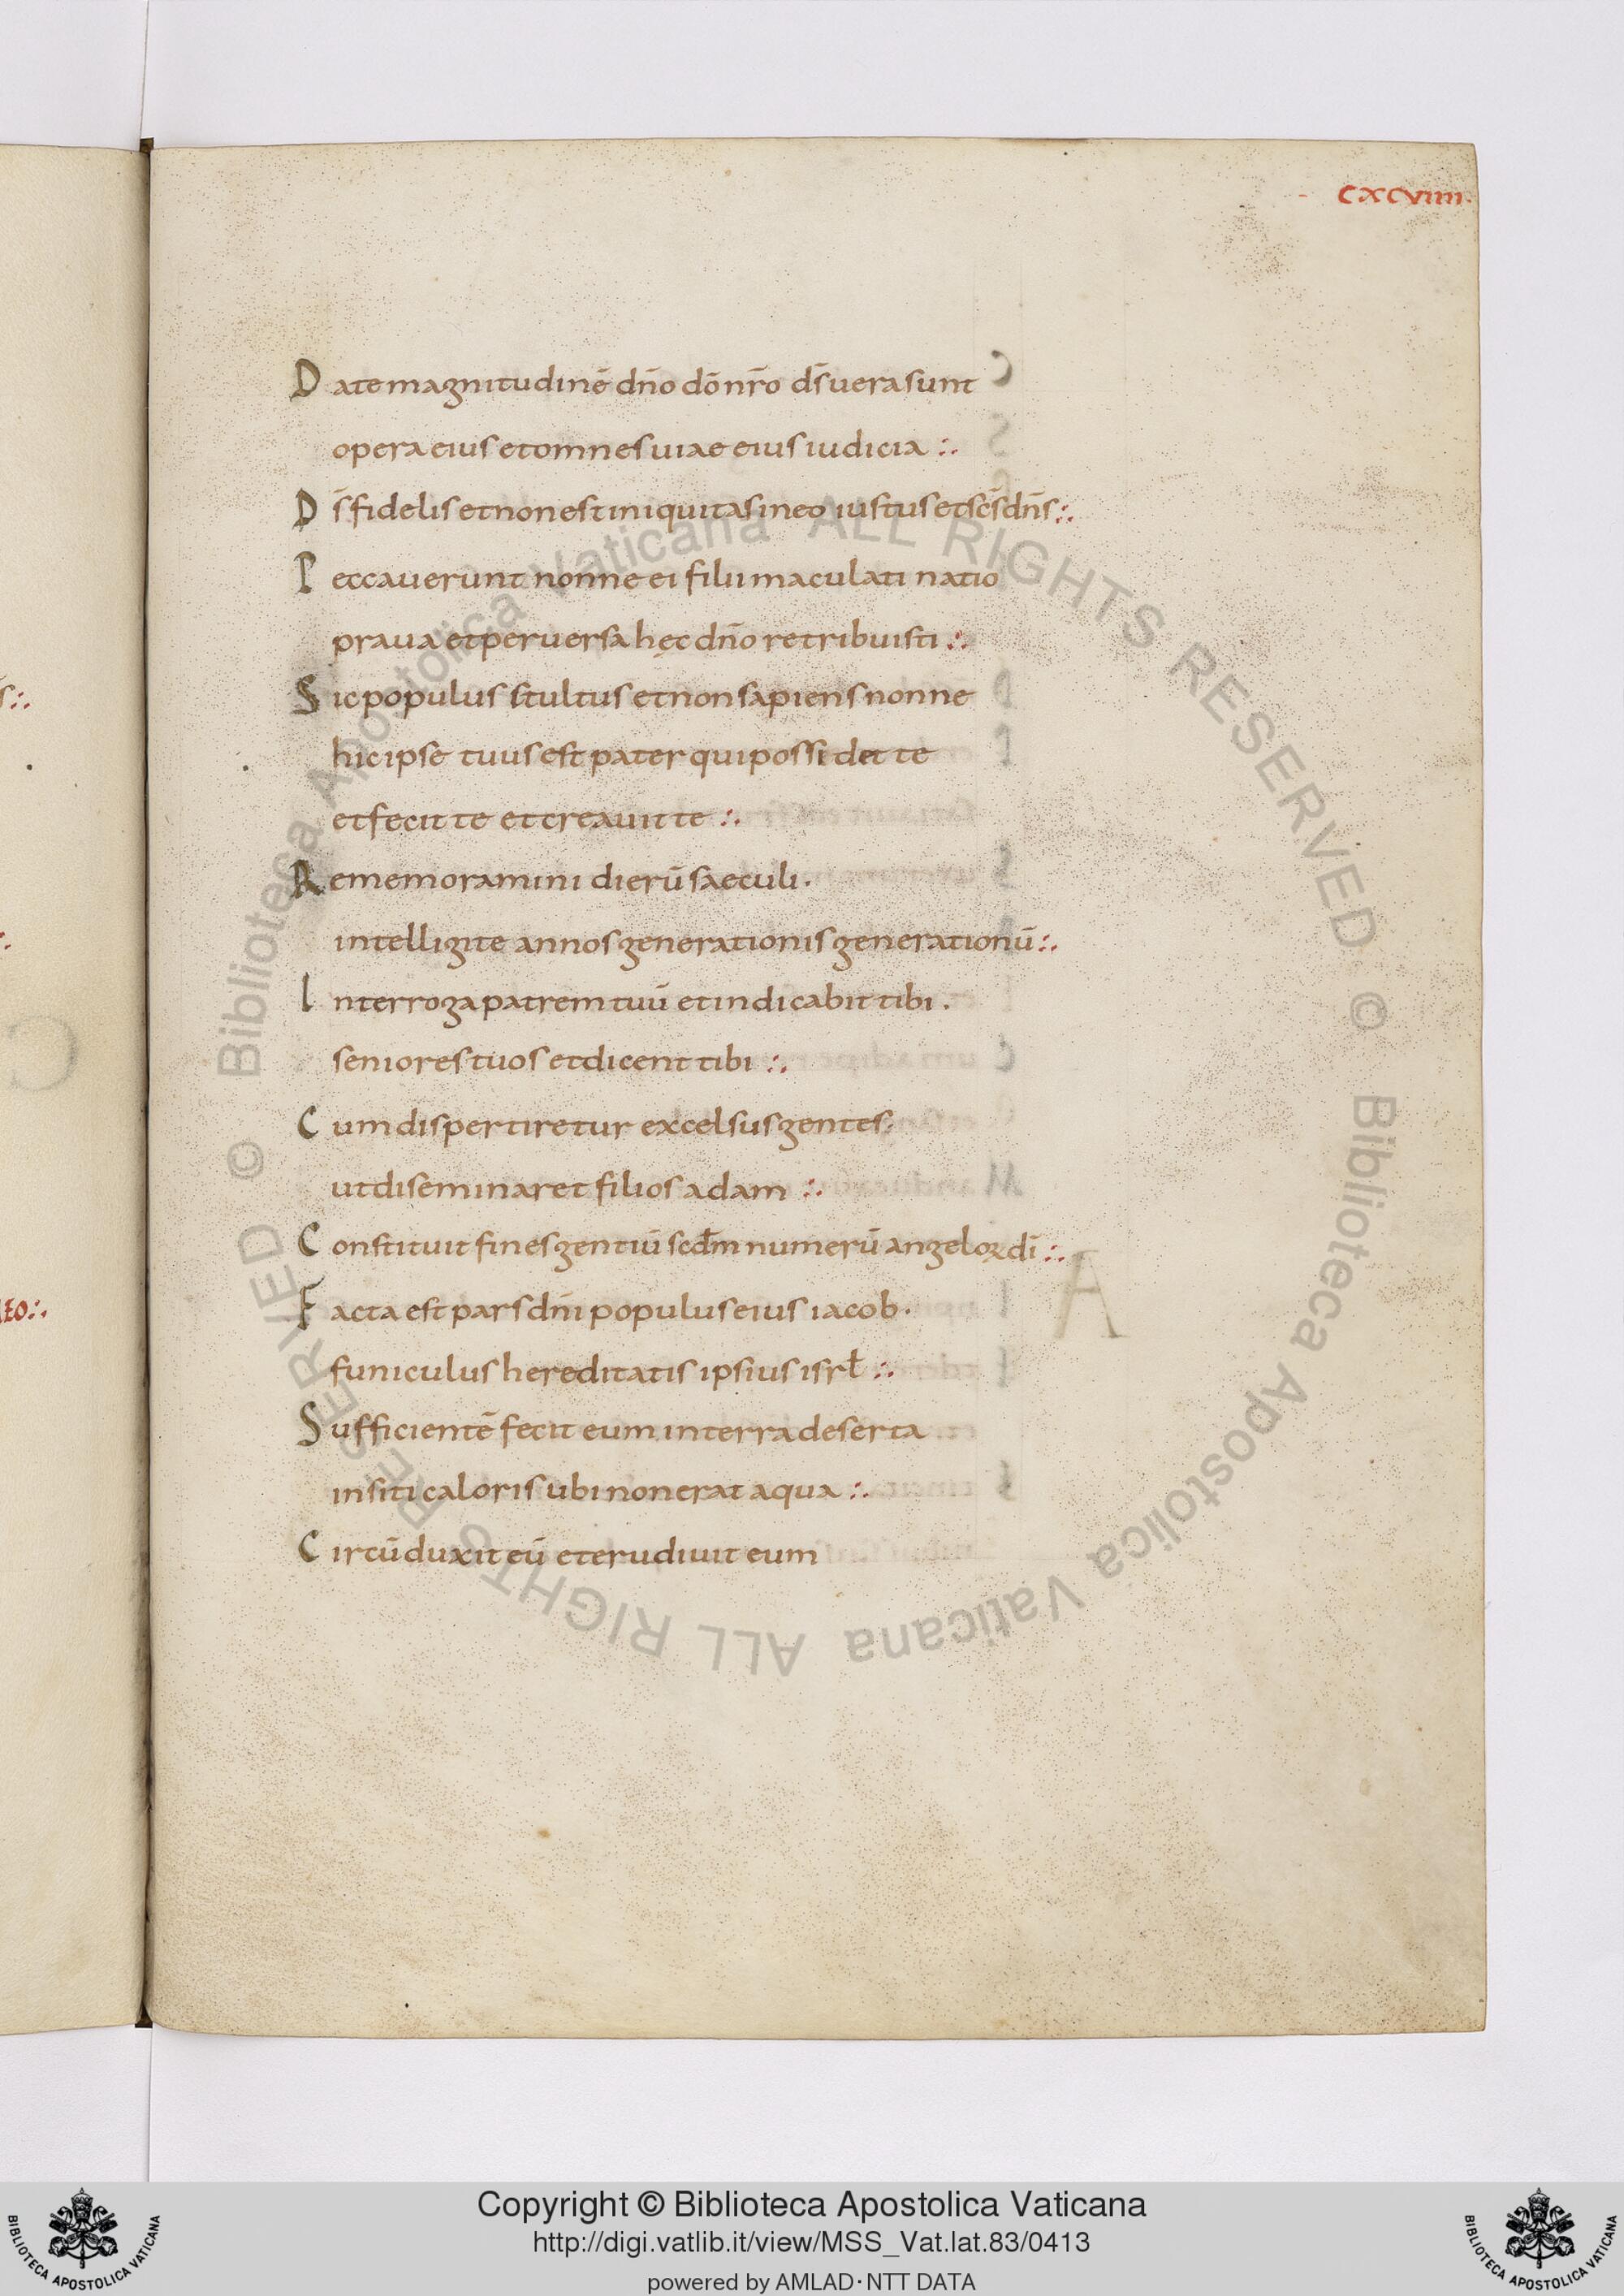 CXCVIIII
Date magnitudinē dn̄o dō nr̄o ds̄ uera sunt
opera eius et omnes uiae eius iudicia :.
Ds̄ fidelis et non est iniquitas in eo iustus et sc̄s dn̄s :.
Peccauerunt non ne ei filii maculati natio
praua et peruersa hęc dn̄o retribuisti :.
Sic populus stultus et non sapiens nonne
hic ipse tuus est pater qui possidet te
et fecit te et creauit te :.
Rememoramini dierū saeculi.
intelligite annos generationis generationū :.
Interroga patrem tuū et indicabit tibi .
seniores tuos et dicent tibi :.
Cum dispertiretur excelsus gentes.
ut diseminaret filios adam :.
Constituit fines gentiū scdm̄ numerū angeloꝝ dī :.
Facta est pars dn̄i populus eius iacob .
funiculus hereditatis ipsius isrł :.
Sufficientē fecit eum in terra deserta
in siti caloris ubi non erat aqua :.
Circūduxit eū et erudiuit eum
A
© Biblioteca Apostolica Vaticana ALL RIGHTS RESERVED © Biblioteca Apostolica Vaticana ALL RIGHTS RESERVED
Copyright © Biblioteca Apostolica Vaticana
http://digi.vatlib.it/view/MSS_Vat.lat.83/0413
powered by AMLAD·NTT DATA
BIBLIOTECA APOSTOLICA VATICANA
BIBLIOTECA APOSTOLICA VATICANA